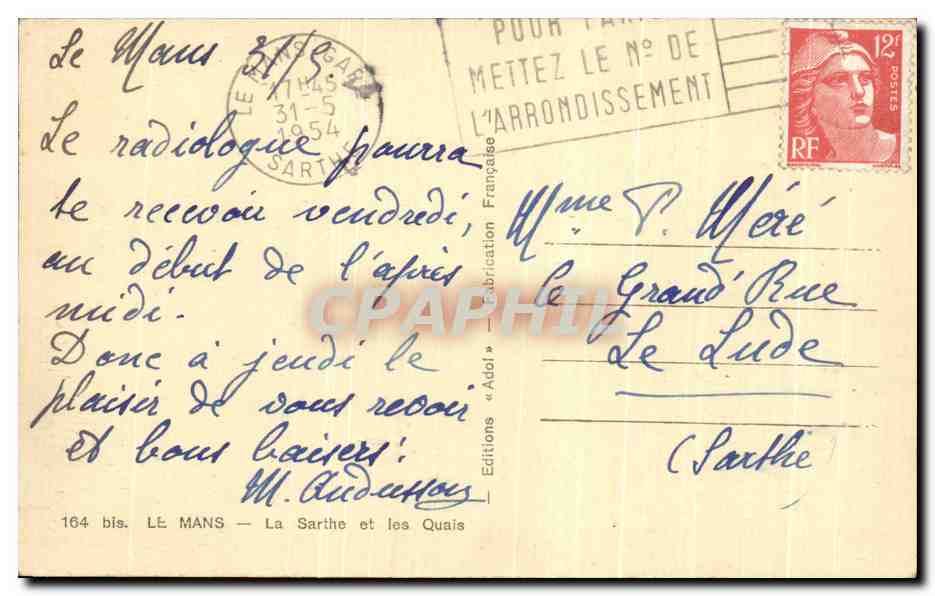 Le Mans 31/5.
LE MANS-GARE
17H45
31-5
1954
SARTHE
POUR PARIS
METTEZ LE Nº DE
L'ARRONDISSEMENT
12F
POSTES
RF
Le radiologue pourra
te recevoir vendredi,
au début de l'après
midi.
Donc à jeudi le
plaisir de vous revoir
et bons baisers!
Mme P. Méré
le Grand' Rue
Le Lude
(Sarthe)
Editions « Adol » — Fabrication Française
CPAPHIL
164 bis. LE MANS — La Sarthe et les Quais